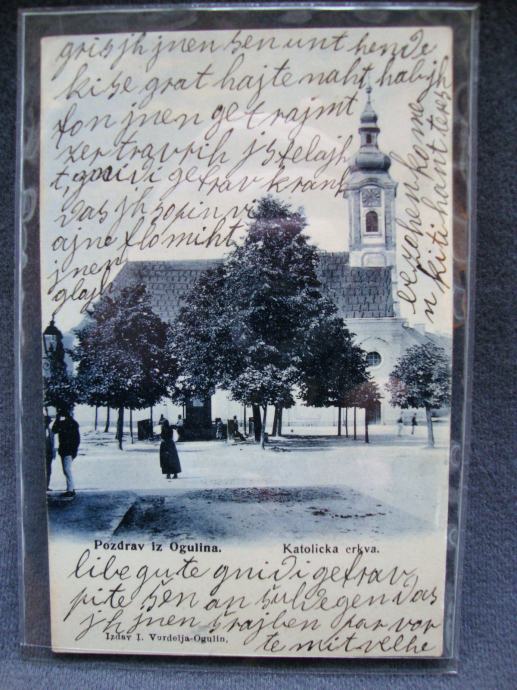 grisjh jnen sen unt hende
kise grat hajte naht habijh
fon jnen get rajmt
zer travrih js felajh
t, gnidi gefrav krank
das jh sofin vi
ajne flomiht
jnen
glajh
bezehen kome
n kiti hant ters
Pozdrav iz Ogulina.
Katolicka crkva.
libe gute gnidi gefrav
pite sen an suldegen das
jh jnen srajben par vor
te mit velhe
Izdav I. Vurdelja-Ogulin,